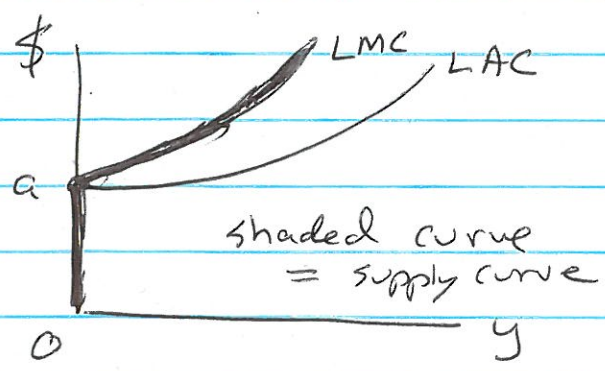 $
LMC
LAC
a
shaded curve
= supply curve
0
y